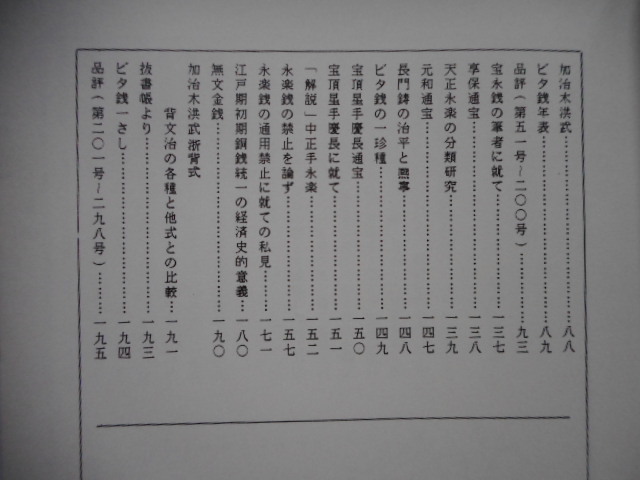 加治木洪武……………………八八
ビタ銭年表……………………八九
品評（第五一号～二〇〇号）……九三
宝永銭の筆者に就て……………一三七
享保通宝………………………一三八
天正永楽の分類研究……………一三九
元和通宝………………………一四七
長門鋳の治平と熈寧……………一四八
ビタ銭の一珍種…………………一四九
宝頂星手慶長通宝………………一五〇
宝頂星手慶長に就て……………一五一
「解説」中正手永楽……………一五二
永楽銭の禁止を論ず……………一五七
永楽銭の通用禁止に就ての私見……一七一
江戸期初期銅銭統一の経済史的意義…一八〇
無文金銭………………………一九〇
加治木洪武 浙背式
背文治の各種と他式との比較……一九一
抜書帳より……………………一九三
ビタ銭一さし…………………一九四
品評（第二〇一号～二九八号）……一九五